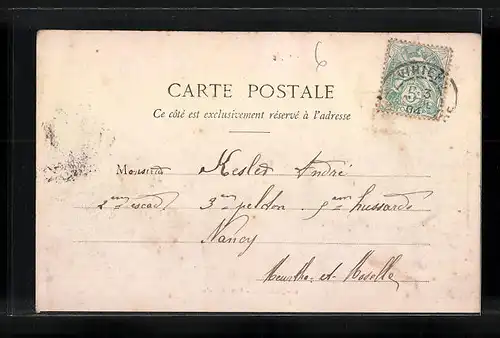 6
CARTE POSTALE
Ce côté est exclusivement réservé à l'adresse
5
3
04
Monsieur Kesler André
2em escad 3em peloton 5em hussards
Nancy
Meurthe-et-Moselle